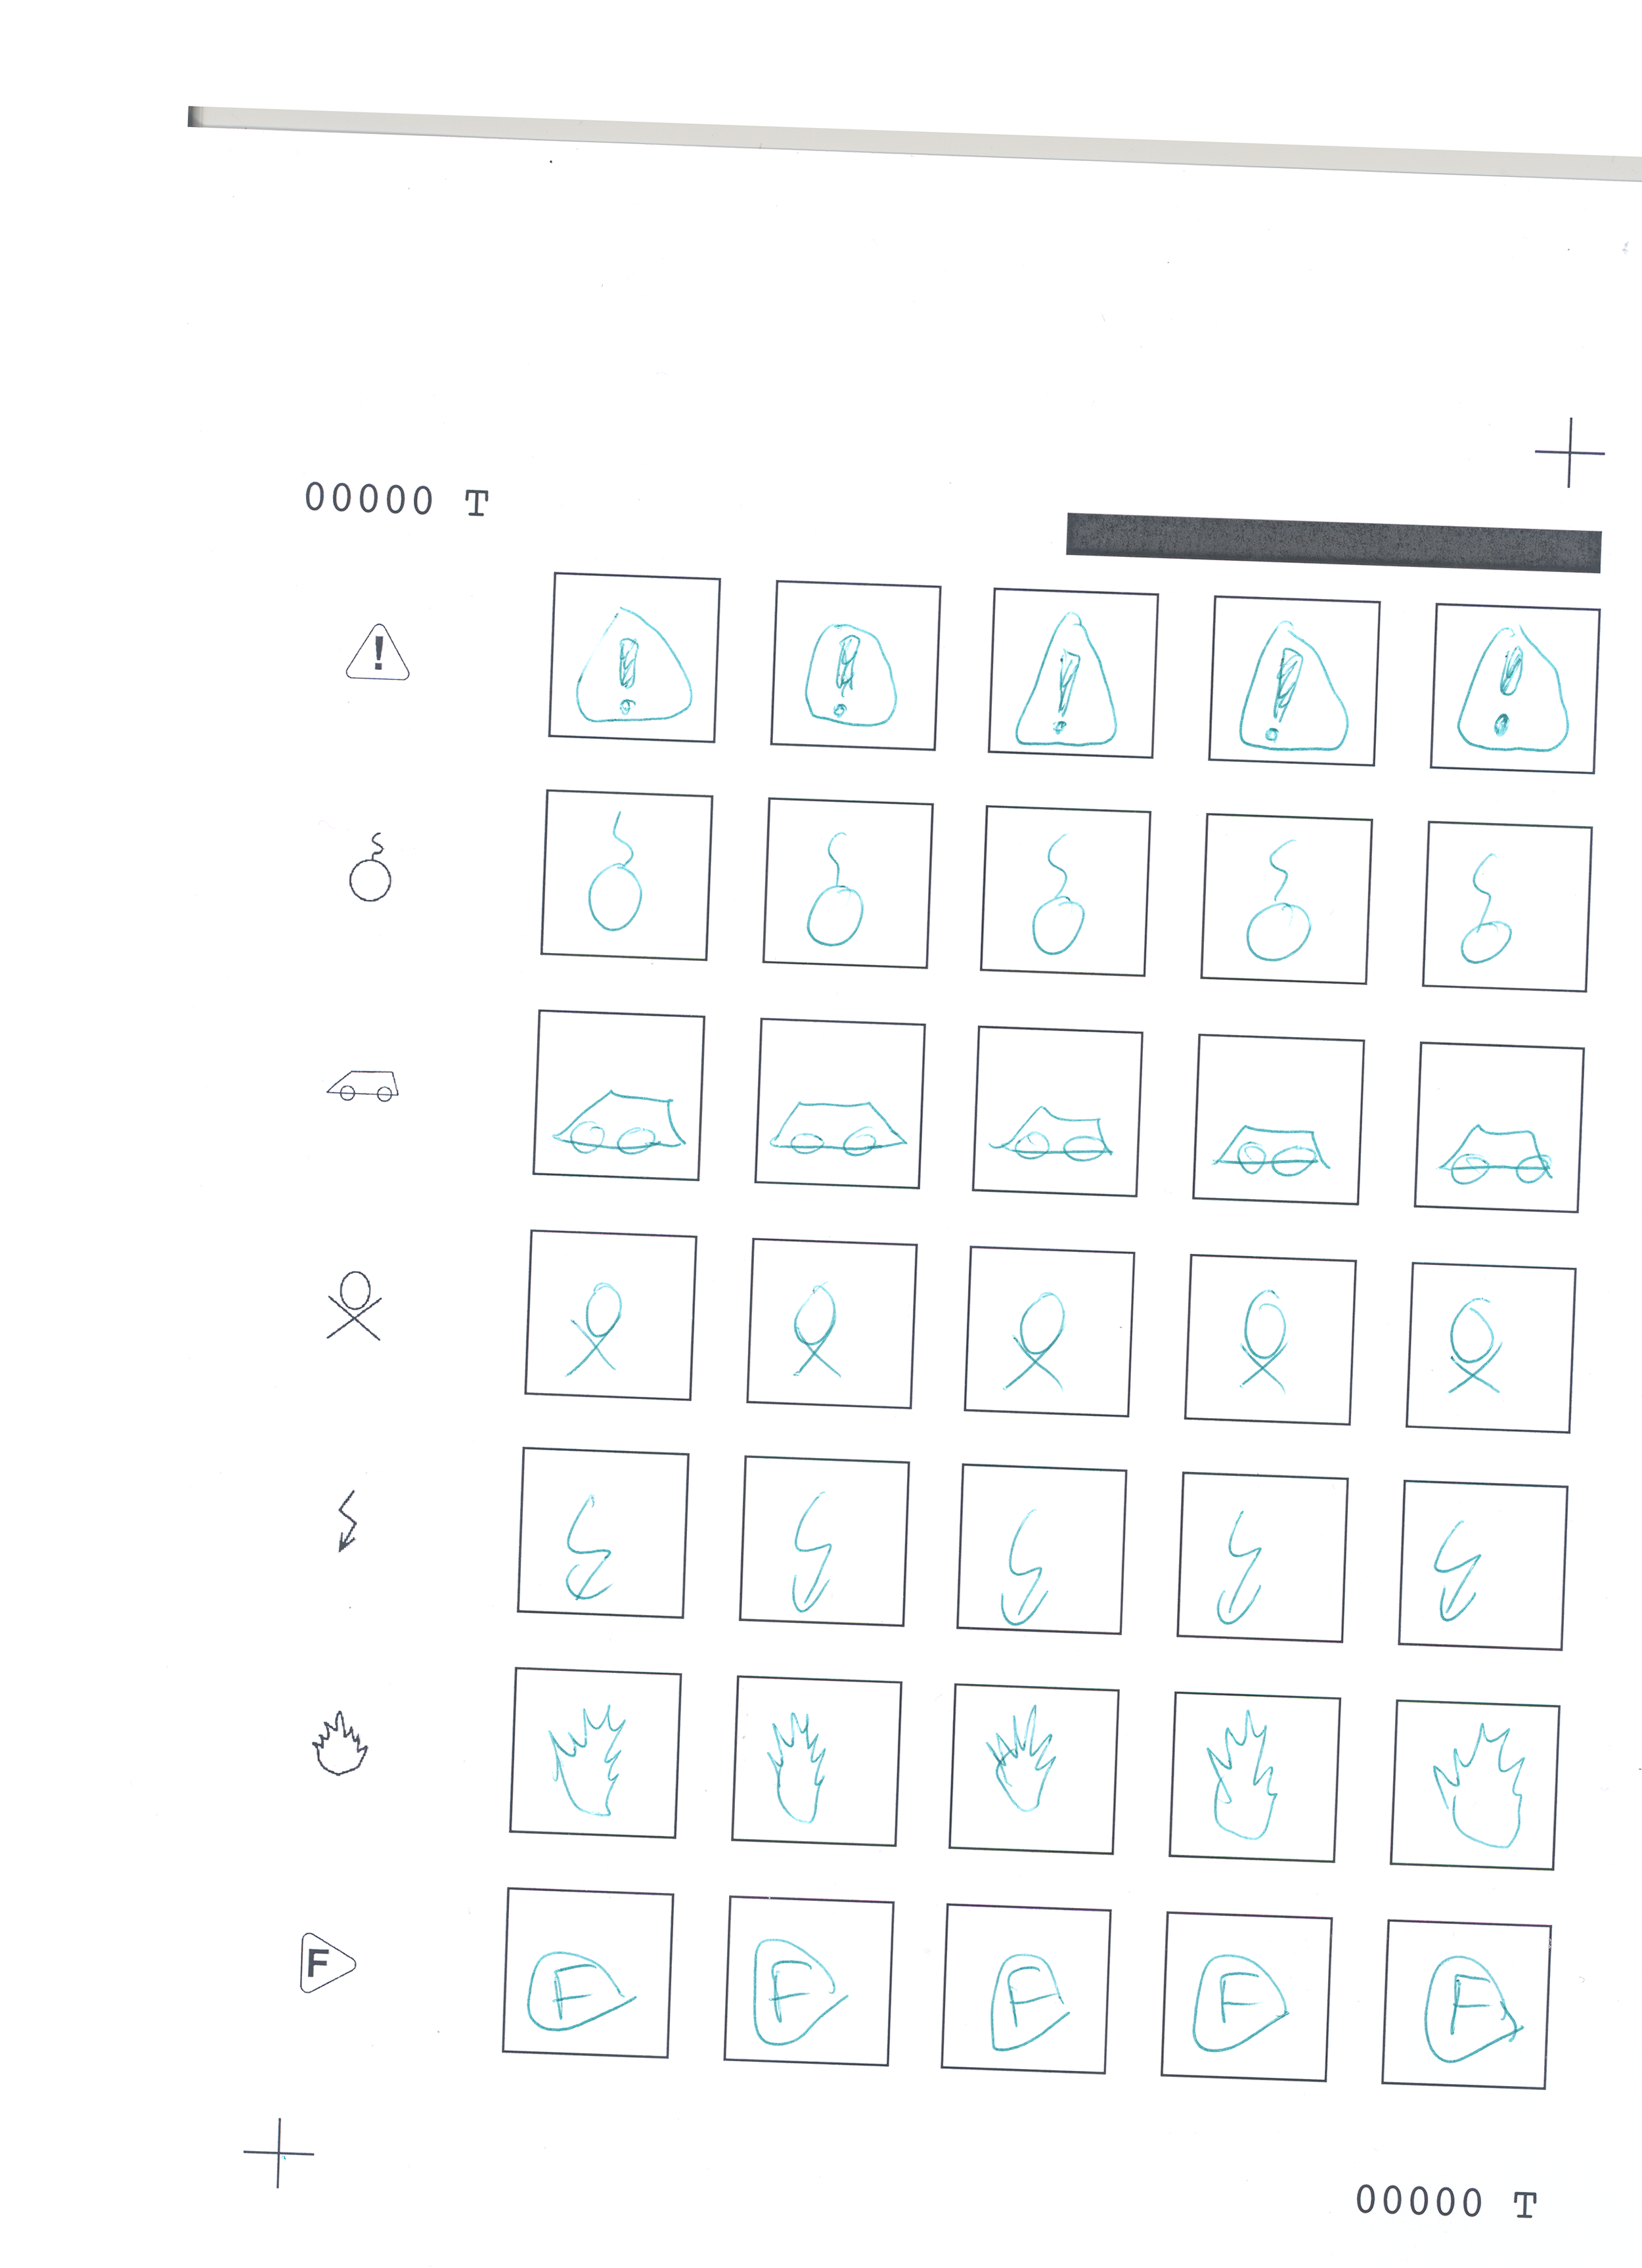 00000 T
!
! ! ! ! !
F
F F F F F
00000 T